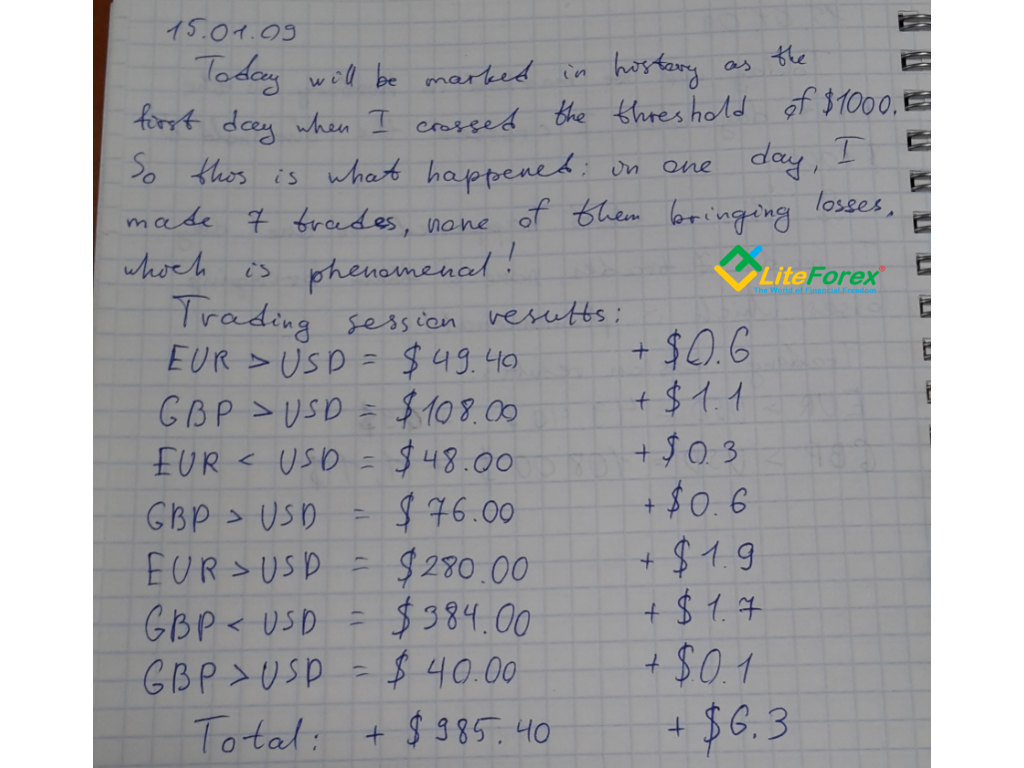 15.01.09
Today will be marked in history as the
first day when I crossed the threshold of $1000.
So this is what happened: in one day, I
made 7 trades, none of them bringing losses,
which is phenomenal!
LiteForex®
The World of Financial Freedom
Trading session results:
EUR > USD = $49.40 + $0.6
GBP > USD = $108.00 + $1.1
EUR < USD = $48.00 + $0.3
GBP > USD = $76.00 + $0.6
EUR > USD = $280.00 + $1.9
GBP < USD = $384.00 + $1.7
GBP > USD = $40.00 + $0.1
Total: + $985.40 + $6.3